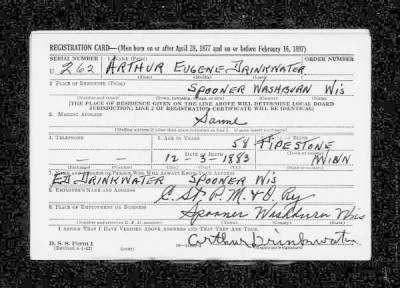 REGISTRATION CARD—(Men born on or after April 28, 1877 and on or before February 16, 1897)
SERIAL NUMBER 1. NAME (Print) ORDER NUMBER
U 262 ARTHUR EUGENE DRINKWATER
(First) (Middle) (Last)
2. PLACE OF RESIDENCE (Print)
SPOONER WASHBURN WIS
(Number and street) (Town, township, village, or city) (County) (State)
[THE PLACE OF RESIDENCE GIVEN ON THE LINE ABOVE WILL DETERMINE LOCAL BOARD
JURISDICTION; LINE 2 OF REGISTRATION CERTIFICATE WILL BE IDENTICAL]
3. MAILING ADDRESS
Same
(Mailing address if other than place indicated on line 2. If same insert word same)
4. TELEPHONE 5. AGE IN YEARS
58 PIPESTONE
DATE OF BIRTH
- - 12 - 3 - 1883 MINN
7. NAME AND ADDRESS OF PERSON WHO WILL ALWAYS KNOW YOUR ADDRESS
ED DRINKWATER SPOONER WIS
8. EMPLOYER'S NAME AND ADDRESS
C. St P. M. & O. Ry
9. PLACE OF EMPLOYMENT OR BUSINESS
Spooner Washburn Wis
(Number and street or R. F. D. number) (Town) (County) (State)
I AFFIRM THAT I HAVE VERIFIED ABOVE ANSWERS AND THAT THEY ARE TRUE.
D. S. S. Form 1
(Revised 4-1-42)
Arthur Drinkwater